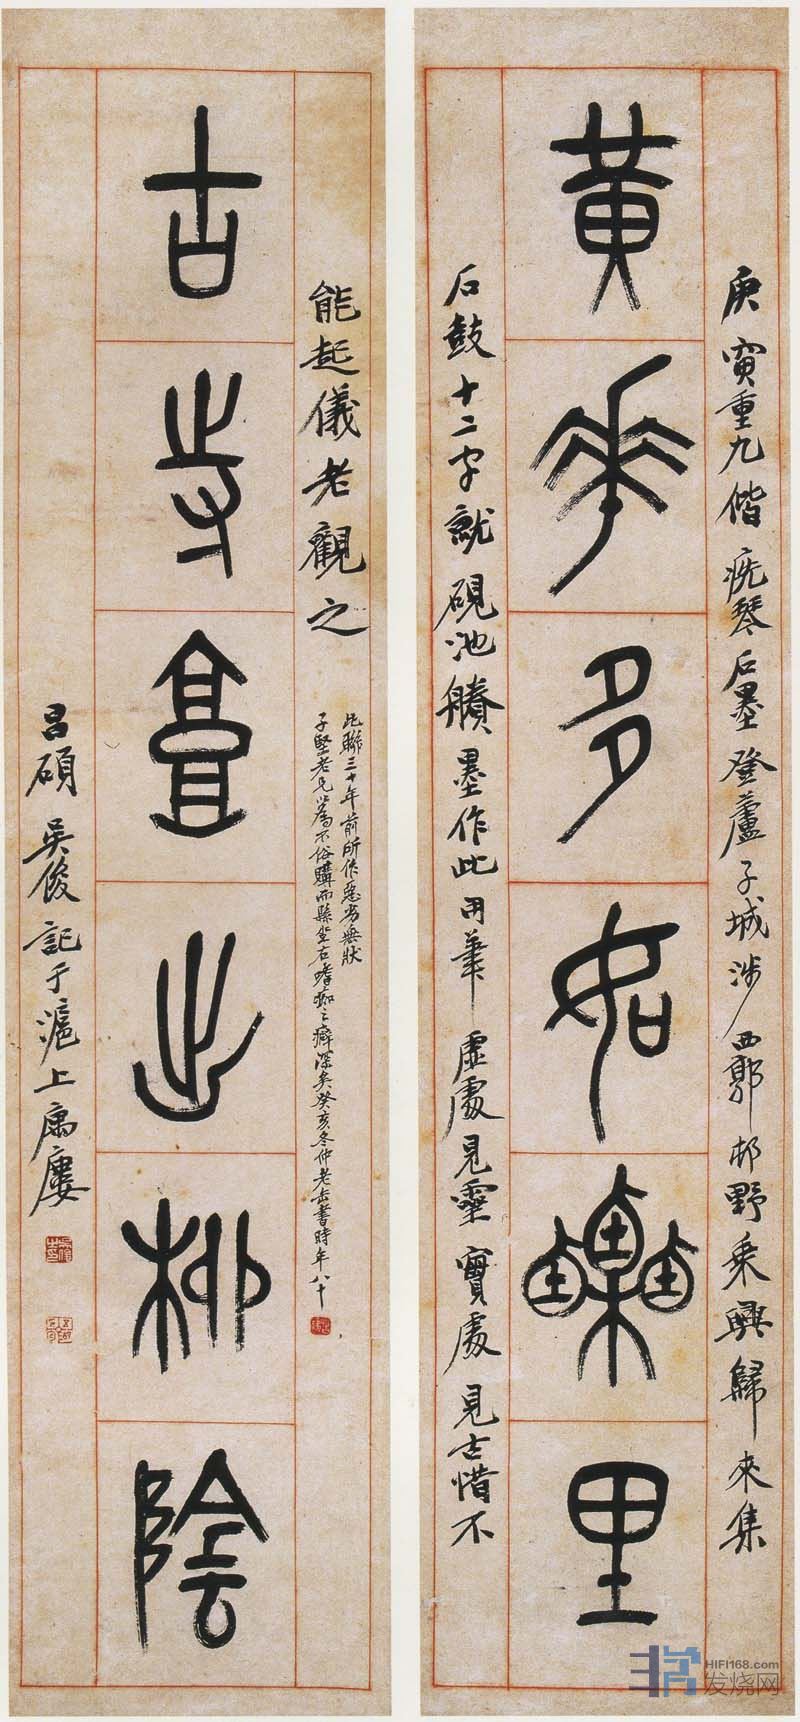 黃華多如栗里
庚寅重九偕疣琴石墨登蘆子城涉西郭邨野乘興歸來集
石鼓十二字就硯池賸墨作此用筆虛處見靈實處見古惜不
古寺出柳陰
能起儀老觀之
此聯三十年前所作惡劣無狀
子堅老兄以爲不俗購而縣坐右嗜痂之癖深矣癸亥冬仲老缶書時年八十
昌碩吳俊記于滬上寓廔
HIFI168.com
发烧网